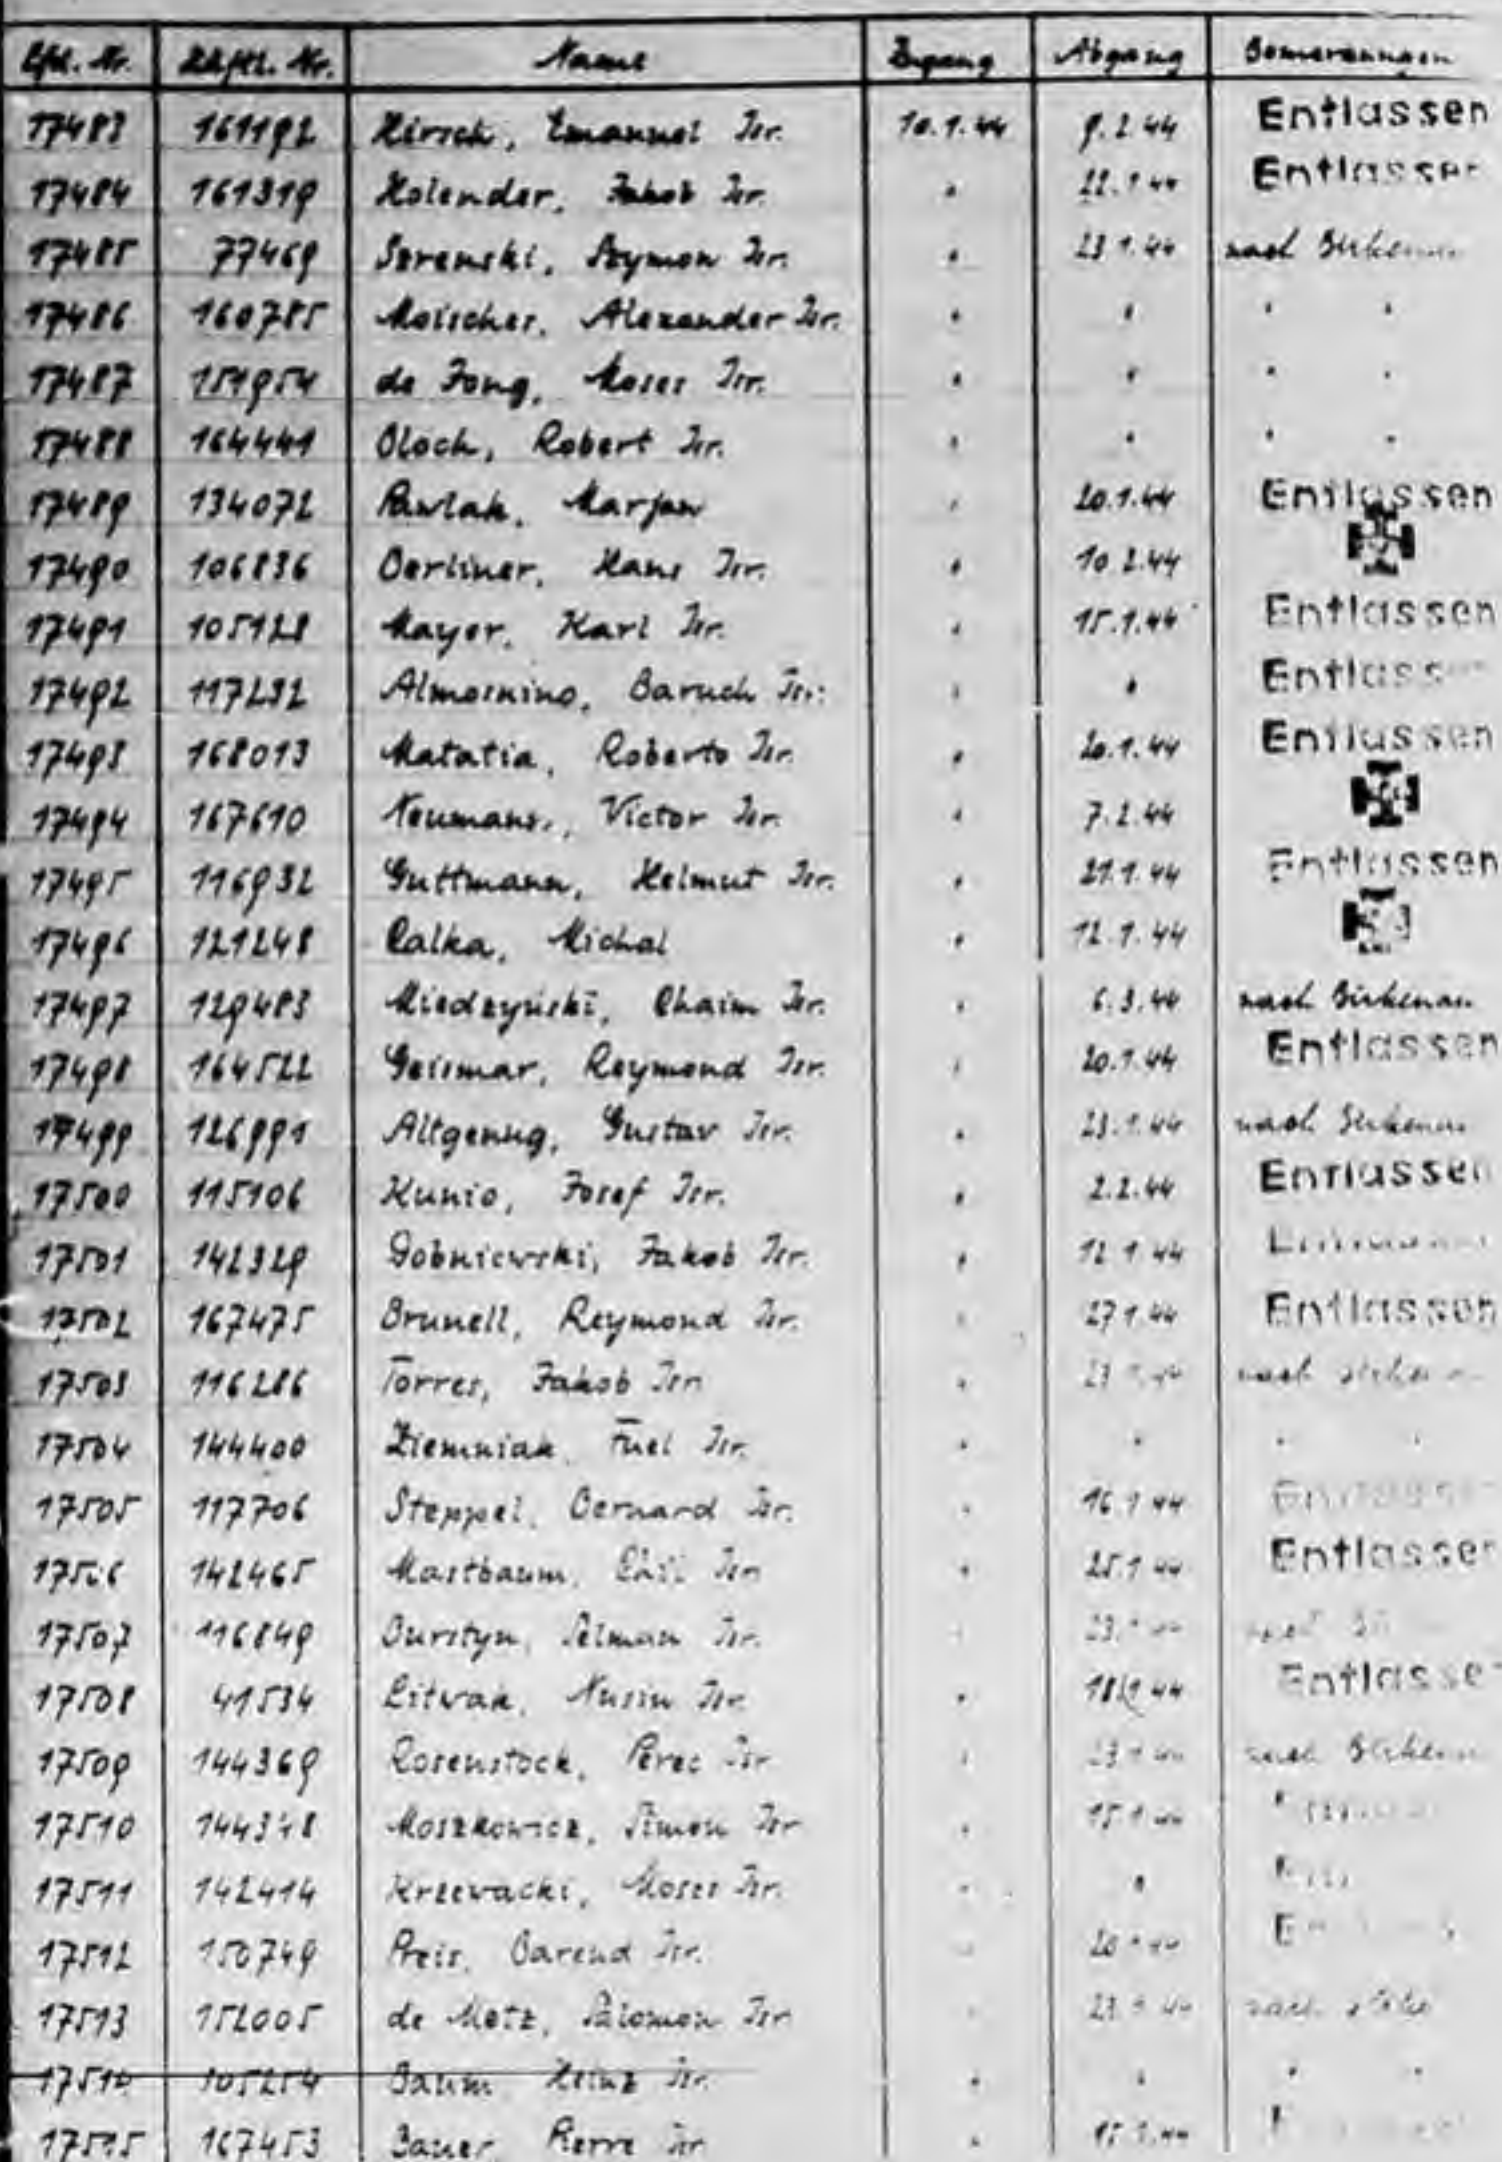 Lfd. Nr. Häftl. Nr. Name Zugang Abgang Bemerkungen
17483 161192 Hirsch, Emanuel Isr. 10.1.44 9.2.44 Entlassen
17484 161319 Holender, Jakob Isr. " 22.1.44 Entlassen
17485 77469 Szrenski, Szymon Isr. " 23.1.44 nach Birkenau
17486 160785 Moischer, Alexander Isr. " " " "
17487 151954 de Jong, Moses Isr. " " " "
17488 164441 Bloch, Robert Isr. " " " "
17489 134072 Pawlak, Marjan " 20.1.44 Entlassen
17490 106836 Berliner, Hans Isr. " 10.2.44
17491 105128 Mayer, Karl Isr. " 15.1.44 Entlassen
17492 117232 Almosnino, Baruch Isr. " " Entlassen
17493 168013 Matatia, Roberto Isr. " 20.1.44 Entlassen
17494 167610 Neumann, Victor Isr. " 7.2.44
17495 116932 Guttmann, Helmut Isr. " 21.1.44 Entlassen
17496 121248 Calka, Michal " 12.1.44
17497 129483 Miedzyński, Chaim Isr. " 6.3.44 nach Birkenau
17498 164522 Geismar, Reymond Isr. " 20.1.44 Entlassen
17499 126991 Altgenug, Gustav Isr. " 23.1.44 nach Birkenau
17500 115106 Kunio, Josef Isr. " 2.2.44 Entlassen
17501 142329 Dobniewski, Jakob Isr. " 12.1.44
17502 167475 Brunell, Reymond Isr. " 27.1.44 Entlassen
17503 116286 Torres, Jakob Isr. " 23.1.44 nach Birkenau
17504 144400 Ziemniak, Fuel Isr. " " " "
17505 117706 Steppel, Bernard Isr. " 16.1.44 Entlassen
17506 142465 Mastbaum, Isr. " 25.1.44 Entlassen
17507 116849 Burstyn, Selman Isr. " 23.1.44 nach
17508 41534 Litwak, Nusin Isr. " 18.1.44 Entlassen
17509 144369 Rosenstock, Perec Isr. " 23.1.44 nach Birkenau
17510 144348 Moszkowicz, Simon Isr. " 15.1.44
17511 142414 Krzewacki, Moses Isr. " "
17512 150749 Preis, Barend Isr. " 20.1.44
17513 152005 de Metz, Salomon Isr. " 23.1.44 nach
17514 105254 Baum Heinz Isr. " " " "
17515 167453 Bauer, Pierre Isr. " 15.1.44